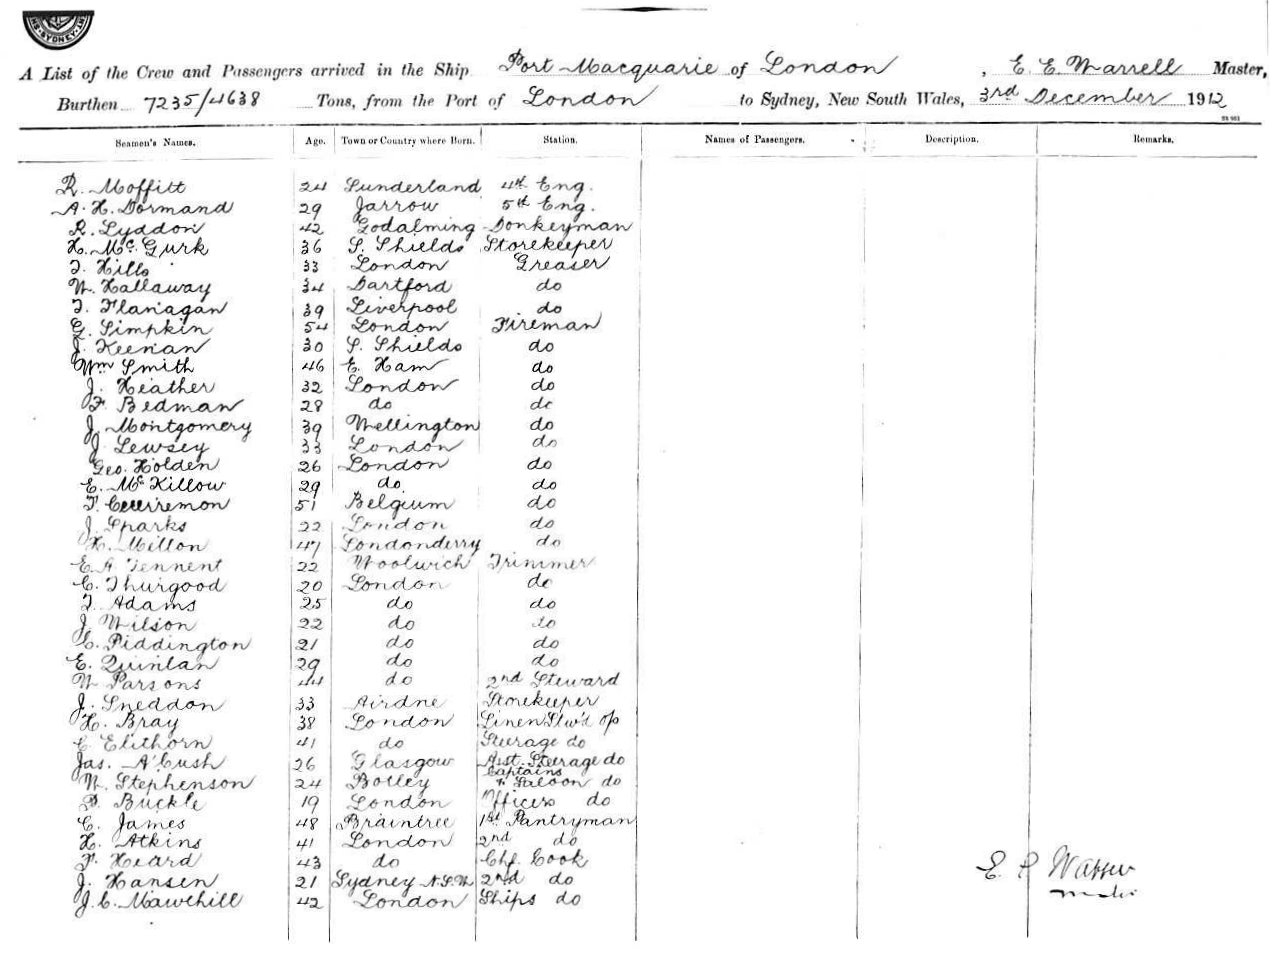 SYDNEY
A List of the Crew and Passengers arrived in the Ship Port Macquarie of London, E. E. Warrell Master,
Burthen 7235/4638 Tons, from the Port of London to Sydney, New South Wales, 3rd December 1912
Seamen's Names. Age. Town or Country where Born. Station. Names of Passengers. Description. Remarks.
R. Moffitt 24 Sunderland 4th Eng.
A. H. Dormand 29 Jarrow 5th Eng.
R. Lyddon 42 Godalming Donkeyman
H. McGurk 36 S. Shields Storekeeper
T. Hills 33 London Greaser
W. Hallaway 34 Dartford do
T. Flanagan 39 Liverpool do
G. Simpkin 54 London Fireman
J. Keenan 30 S. Shields do
Wm Smith 46 E. Ham do
J. Heather 32 London do
F. Bedman 28 do do
J. Montgomery 39 Wellington do
J. Lewsey 33 London do
Geo. Holden 26 London do
E. McKillow 29 do do
F. 51 Belgium do
J. Sparks 22 London do
H. Millon 47 Londonderry do
E. A. Tennent 22 Woolwich Trimmer
C. Thurgood 20 London do
T. Adams 25 do do
J. Wilson 22 do do
C. Piddington 21 do do
E. Quinlan 29 do do
W Parsons 44 do 2nd Steward
J. Sneddon 33 Airdne Storekeeper
H. Bray 38 London Linen Stw'd
C Elithorn 41 do Steerage do
Jas. A'Cush 26 Glasgow Asst. Steerage do
W. Stephenson 24 Botley Captains & Saloon do
P. Buckle 19 London Officers do
C. James 48 Braintree 1st Pantryman
H. Atkins 41 London 2nd do
F. Heard 43 do Chf. Cook
J. Hansen 21 Sydney N.S.W 2nd do
J. C. Mawchill 42 London Ships do